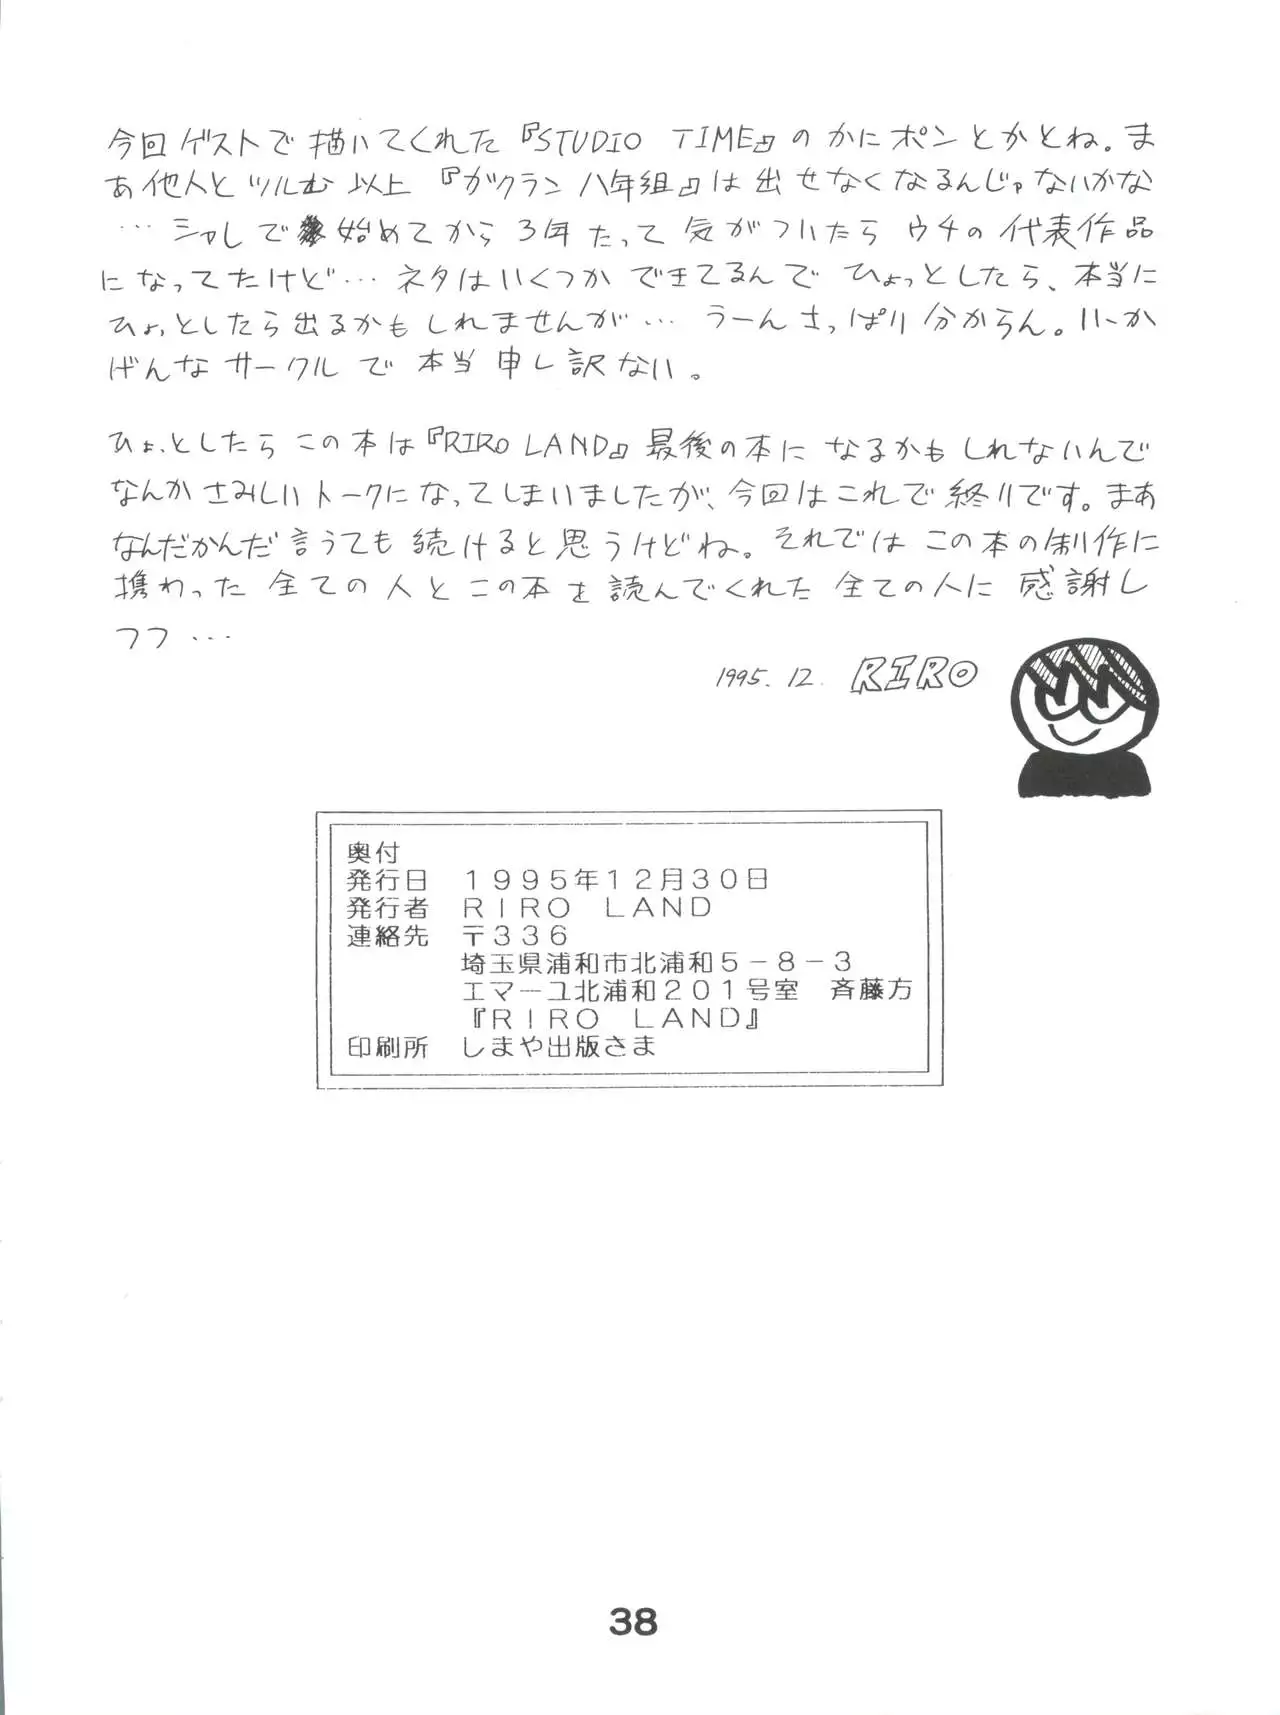 今回ゲストで描いてくれた『STUDIO TIME』のかにポンとかとね。ま
ぁ他人とツルむ以上『ガクラン八年組』は出せなくなるんじゃないかな
…シャレで始めてから3年たって気がついたらウチの代表作品
になってたけど…ネタはいくつかできてるんでひょっとしたら、本当に
ひょっとしたら出るかもしれませんが…うーんさっぱり分からん。いーか
げんなサークルで本当申し訳ない。
ひょっとしたらこの本は『RIRO LAND』最後の本になるかもしれないんで
なんかさみしいトークになってしまいましたが、今回はこれで終りです。まあ
なんだかんだ言うても続けると思うけどね。それではこの本の制作に
携わった全ての人とこの本を読んでくれた全ての人に感謝し
つつ…
1995.12. RIRO
奥付
発行日 1995年12月30日
発行者 RIRO LAND
連絡先 〒336
埼玉県浦和市北浦和5－8－3
エマーユ北浦和201号室 斉藤方
『RIRO LAND』
印刷所 しまや出版さま
38